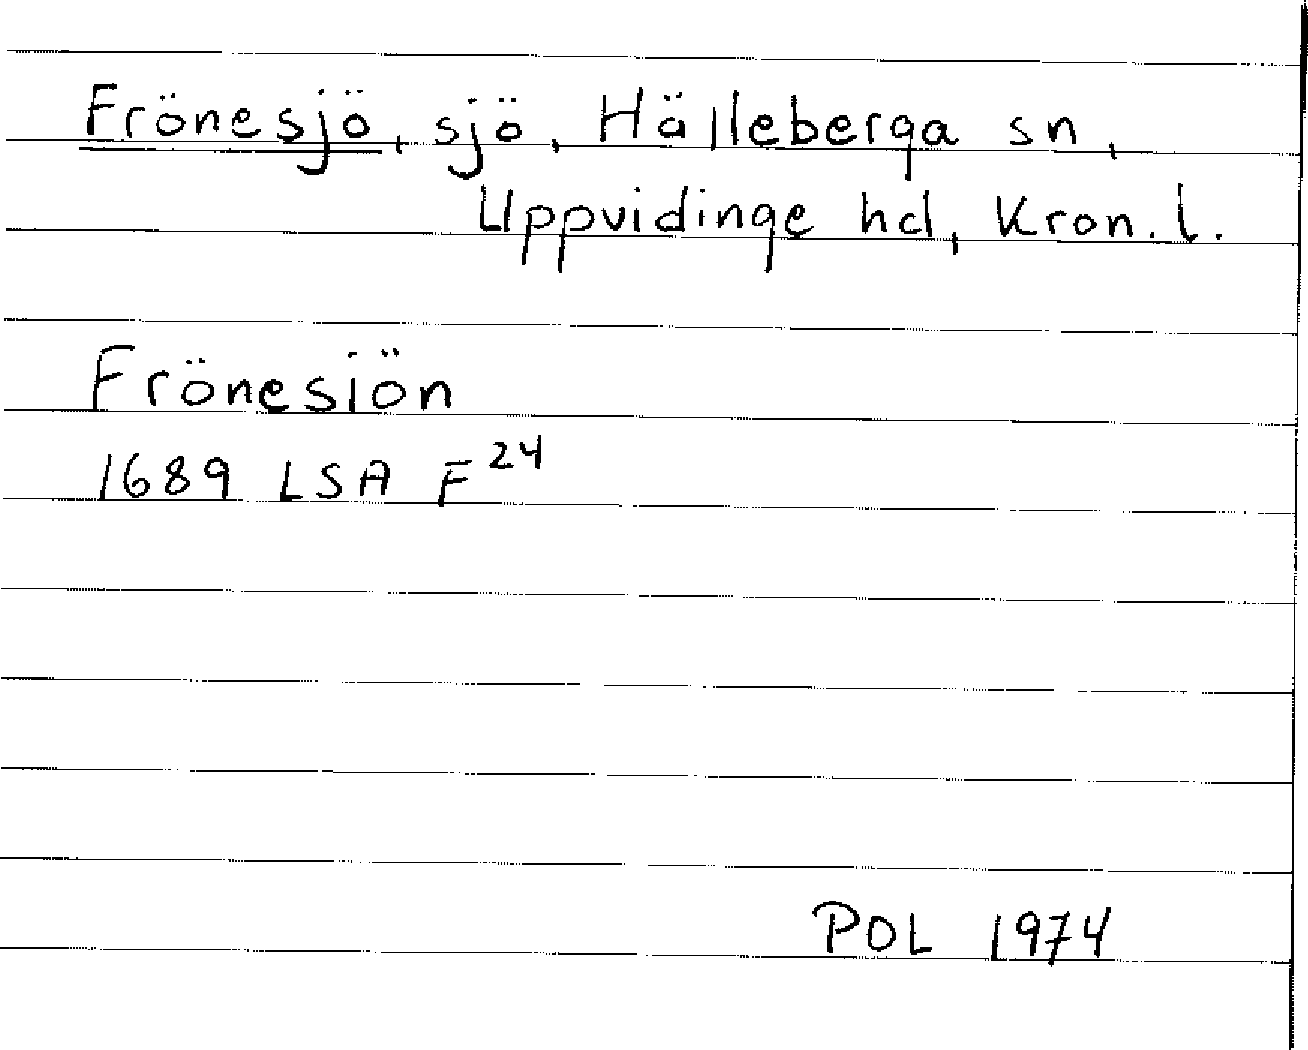 Frönesjö, sjö, Hälleberga sn,
Uppvidinge hd, Kron. l.
Frönesiön
1689 LSA F 24
POL 1974